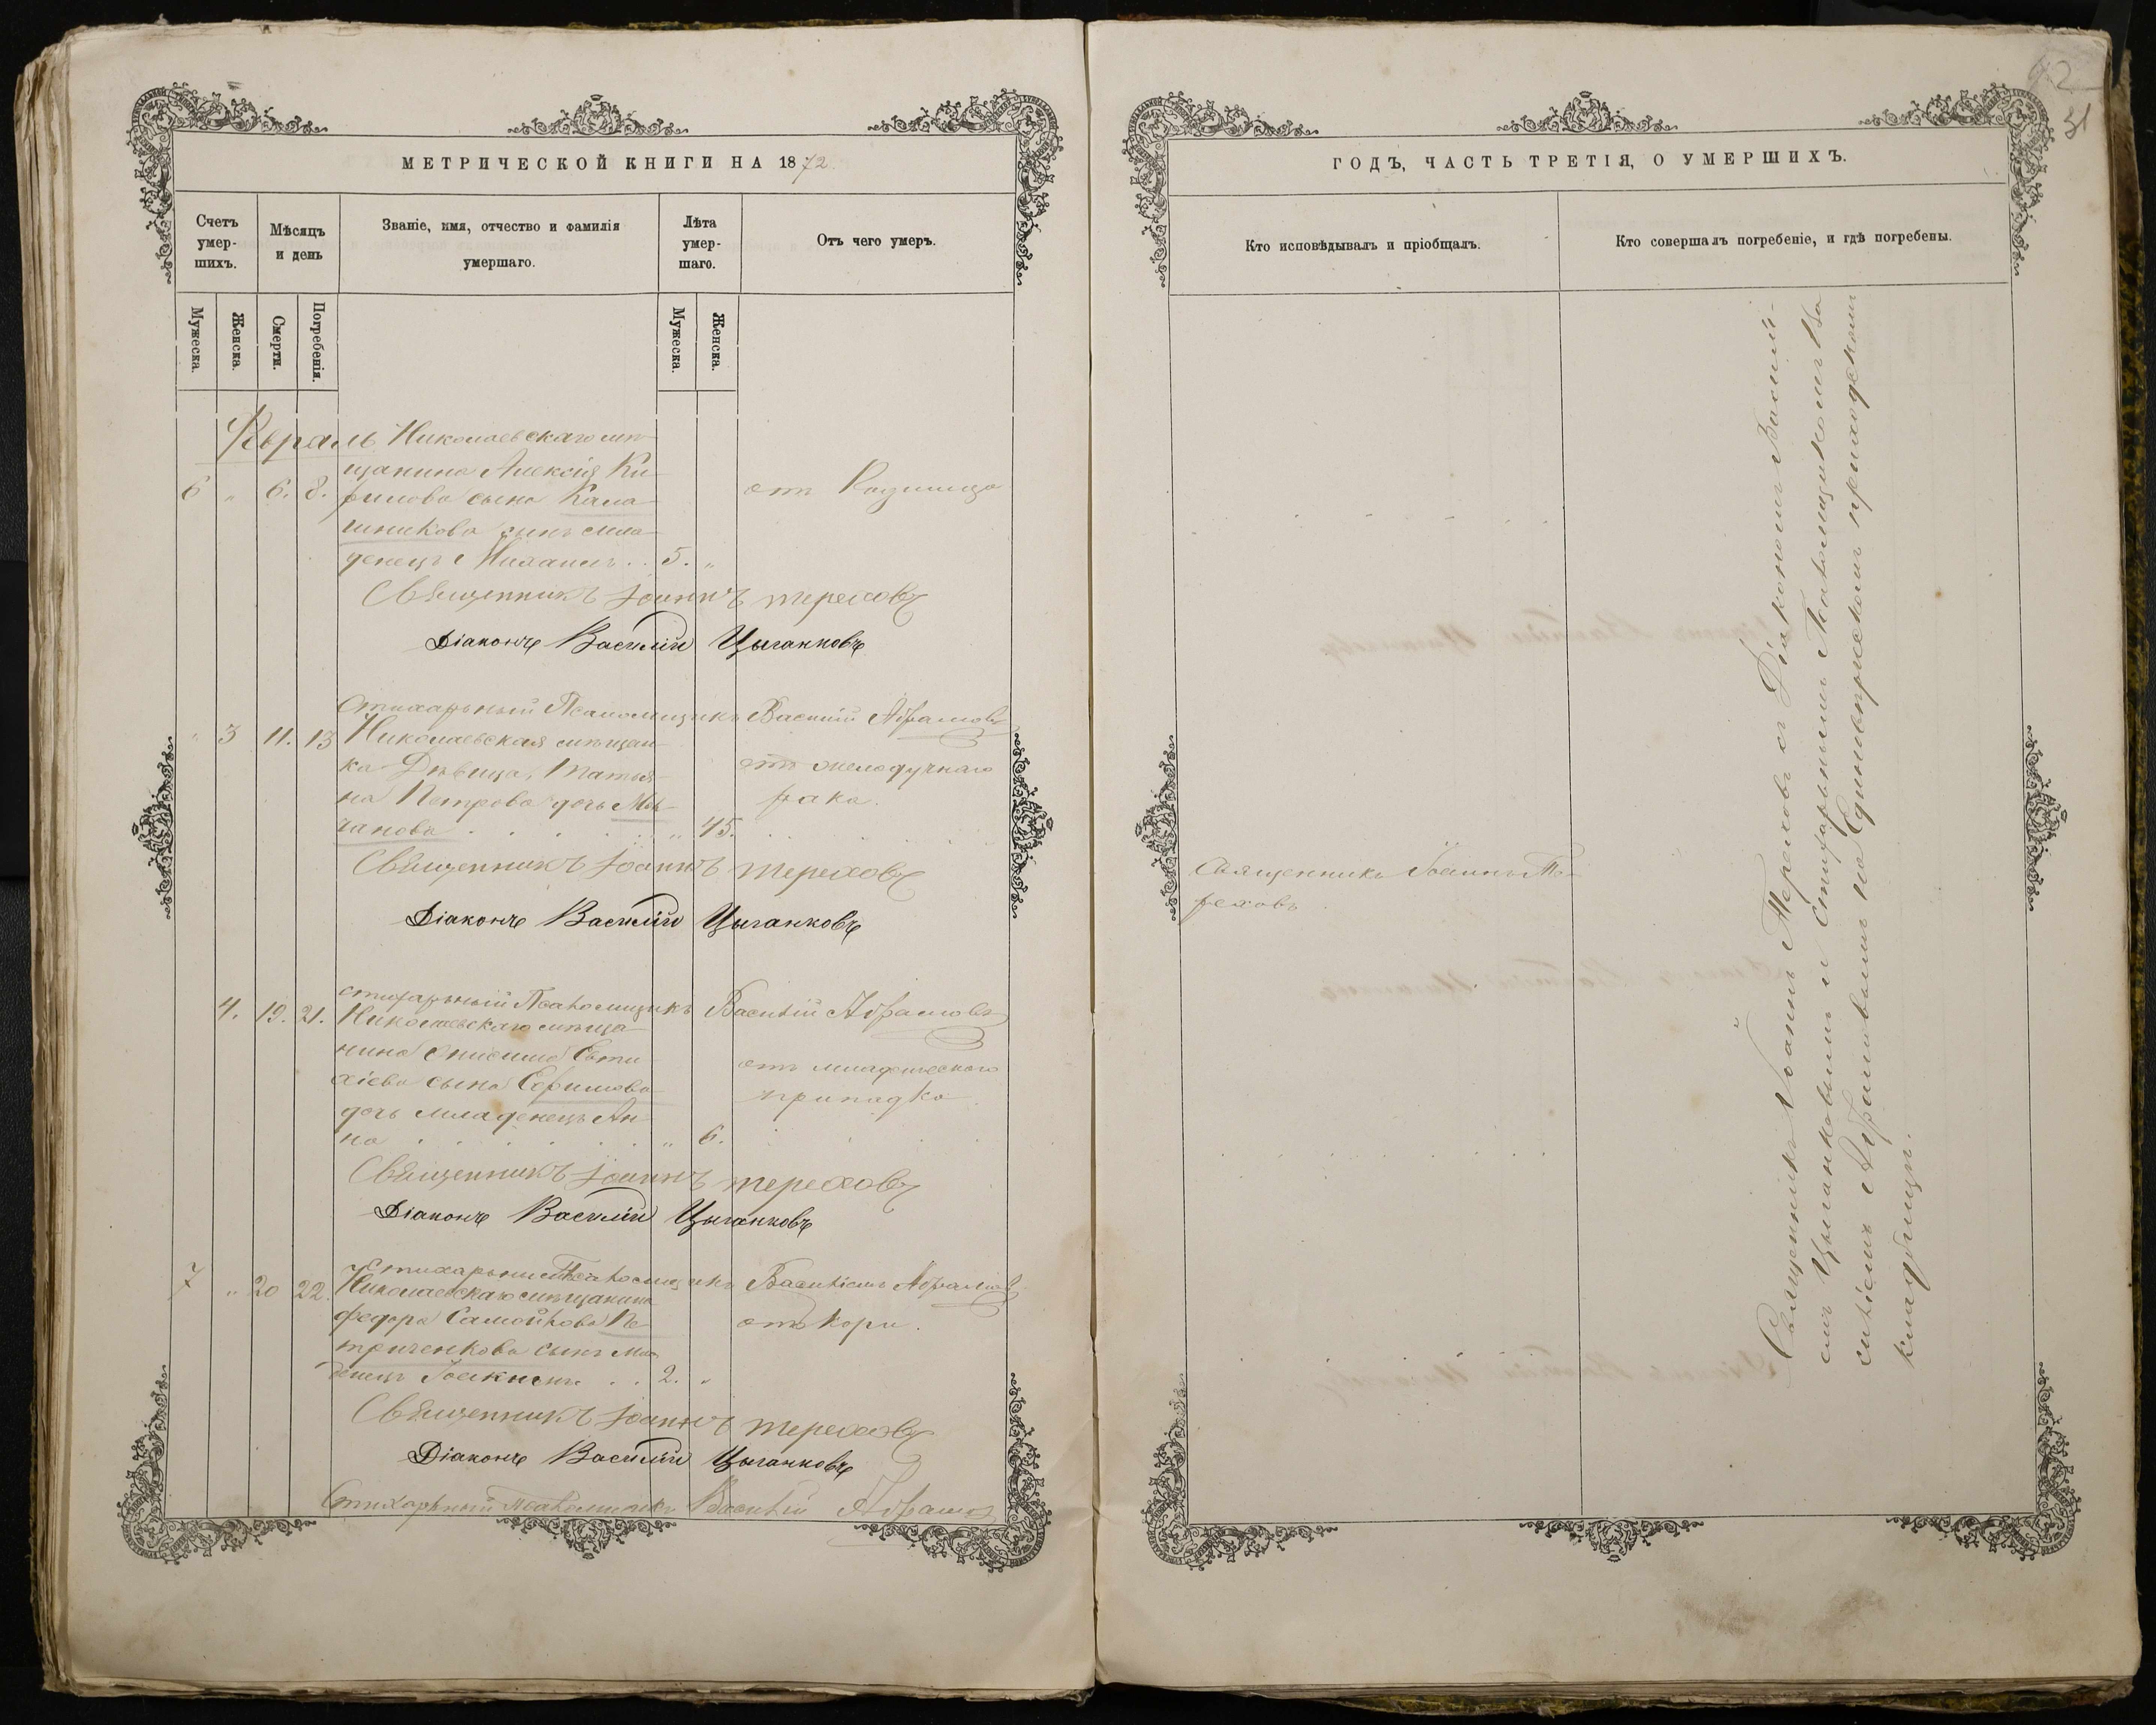 МЕТРИЧЕСКОЙ КНИГИ НА 1872
Счетъ умер-шихъ.
Мѣсяцъ и день
Званіе, имя, отчество и фамилія умершаго.
Лѣта умер-шаго.
Отъ чего умеръ.
Мужеска.
Женска.
Смерти.
Погребенія.
Мужеска.
Женска.
Николаевскаго мѣ-
щанина Алексія Ки-
6 „ 6. 8. рилова сына Кала-
шникова сынъ мла-
денецъ Михаилъ . . 5. „
Священникъ Іоаннъ Тереховъ
Діаконъ Василій Цыганковъ
Стихарный Псаломщикъ Василій Абрамовъ
„ 3 11. 13 Николаевская мѣщан-
ка Дѣвица, Татья- отъ желудочнаго
на Петрова дочь Мол- рака.
чанова . . . . . „ 45.
Священникъ Іоаннъ Тереховъ
Діаконъ Василій Цыганковъ
стихарный Псаломщикъ Василій Абрамовъ
4. 19. 21. Николаевскаго мѣща-
нина Онисима Евти-
хіева сына Ефимова отъ младенческаго
дочь младенецъ Ан- припадка.
на . . . . . . „ 6.
Священникъ Іоаннъ Тереховъ
Діаконъ Василій Цыганковъ
Василіемъ Абрамовъ
7 „ 20 22. Николаевскаго мѣщанина
Федора Самойлова Пе- отъ кори.
триченкова сынъ мла-
денецъ Іоакимъ . . 2. „
Священникъ Іоаннъ Тереховъ
Діаконъ Василій Цыганковъ
Стихарный Псаломщикъ Василій Абрамов
92
31
ГОДЪ, ЧАСТЬ ТРЕТІЯ, О УМЕРШИХЪ.
Кто исповѣдывалъ и пріобщалъ.
Кто совершалъ погребеніе, и гдѣ погребены.
Священникъ Іоаннъ Те-
реховъ
Священникъ Іоаннъ Тереховъ съ Діакономъ Василі-
емъ Цыганковымъ и Стихарнымъ Псаломщикомъ Ва
силіемъ Абрамовымъ на Единовѣрческомъ приходскомъ
кладбищѣ.